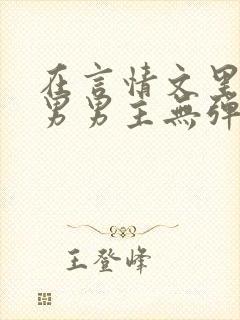 在言情文里
男男主無彈
王登峰